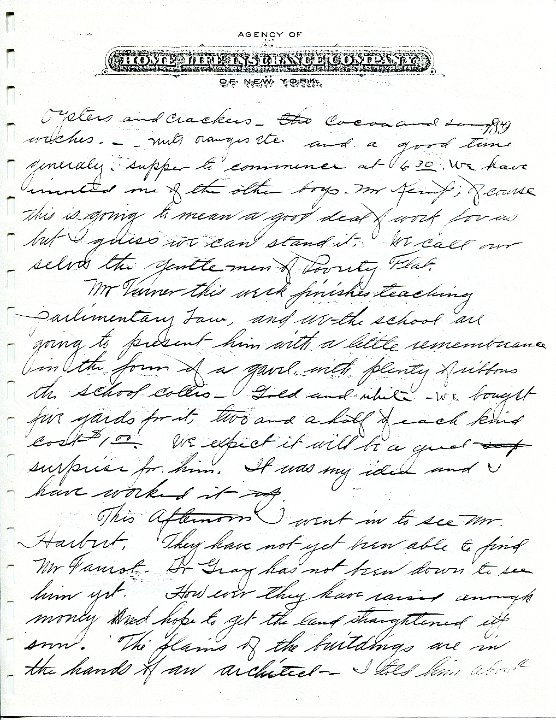 AGENCY OF
HOME LIFE INSURANCE COMPANY
OF NEW YORK.
Oysters and crackers - the Cocoa and sand
wiches. - nuts oranges etc. and a good time
generaly. supper to commence at 6.30. We have
invited one of the other boys. Mr Kemp, of course
this is going to mean a good deal of work for us
but I guess we can stand it. We call our
selves the gentlemen of Poverty Flat.
Mr Turner this week finishes teaching
Parlimentary Law, and we-the school are
going to present him with a little rememberance
in the form of a gavel with plenty of ribbons
the school collors - Gold and white - we bought
five yards for it, two and a half of each kind
cost $1.00. We expect it will be a great
surprise for him. It was my idea and I
have worked it up
This Afternoon I went in to see Mr
Harbert. They have not yet been able to find
Mr Faurot. Dr Gray has not been down to see
him yet. How ever they have raised enough
money and hope to get the land straightened up
soon. The plains of the buildings are in
the hands of an architect - I told him about